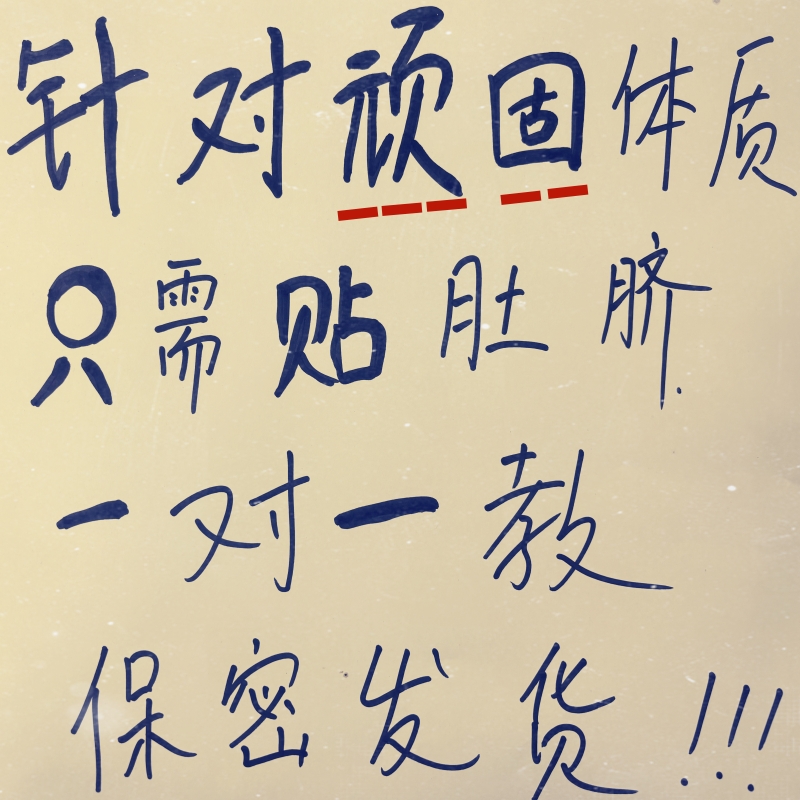 针对顽固体质
只需贴肚脐.
一对一教
保密发货!!!